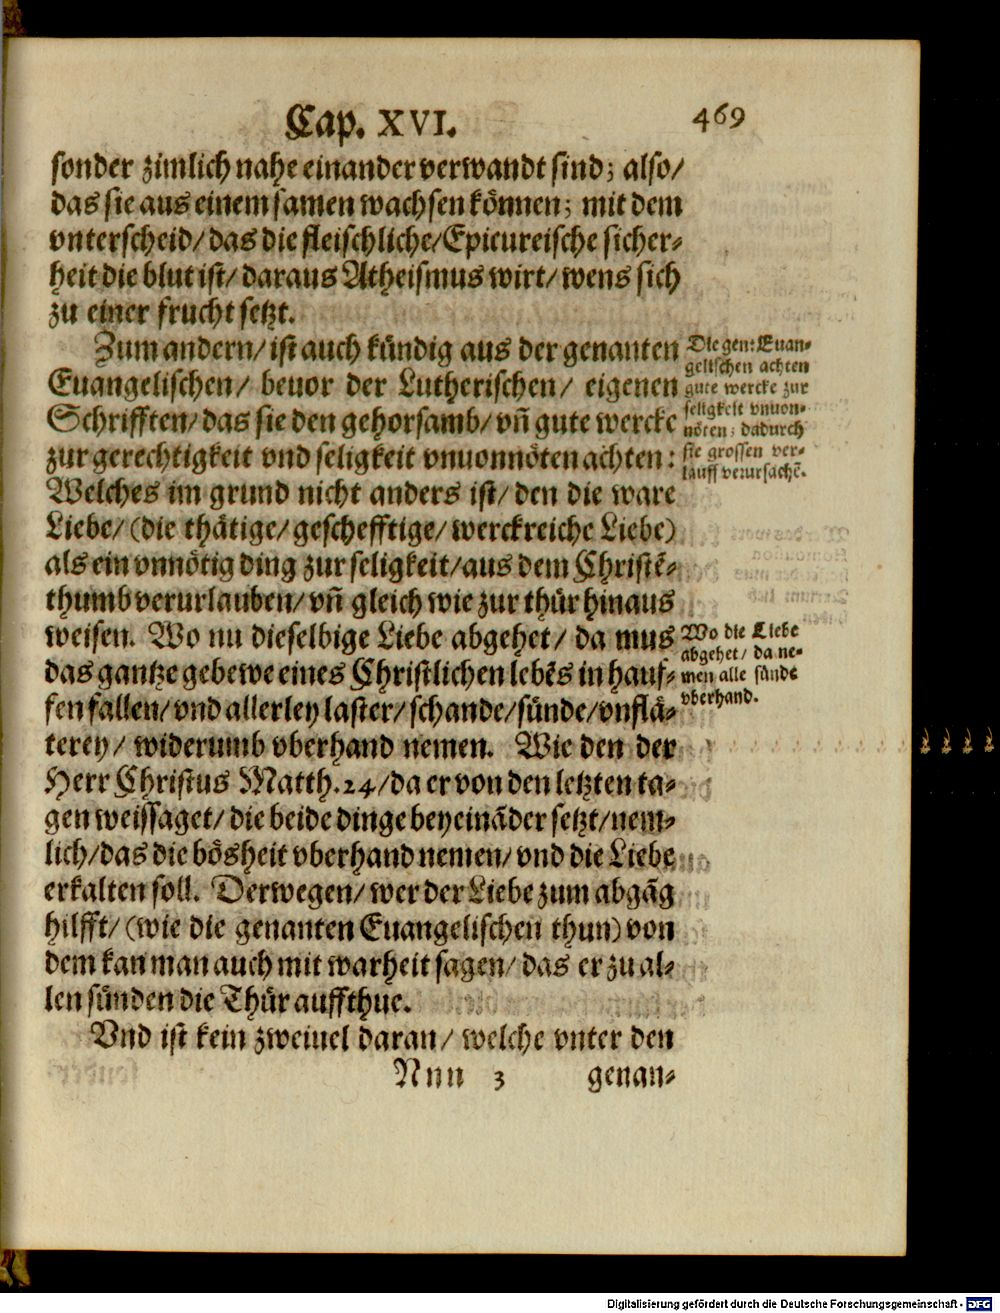 Cap. XVI. 469
sonder zimlich nahe einander verwandt sind; also/
das sie aus einem samen wachsen können; mit dem
vnterscheid/ das die fleischliche/ Epicureische sicher-
heit die blut ist/ daraus Atheismus wirt/ wens sich
zu einer frucht setzt.
Zum andern/ ist auch kündig aus der genanten
Euangelischen/ beuor der Lutherischen/ eigenen
Schrifften/ das sie den gehorsamb/ vñ gute wercke
zur gerechtigkeit vnd seligkeit vnuonnöten achten:
Welches im grund nicht anders ist/ den die ware
Liebe/ (die thätige/ geschefftige/ werckreiche Liebe)
als ein vnnötig ding zur seligkeit/ aus dem Christẽ-
thumb verurlauben/ vñ gleich wie zur thür hinaus
weisen. Wo nu dieselbige Liebe abgehet/ da mus
das gantze gebewe eines Christlichen lebẽs in hauf-
fen fallen/ vnd allerley laster/ schande/ sünde/ vnflä-
terey/ widerumb vberhand nemen. Wie den der
Herr Christus Matth. 24/ da er von den letzten ta-
gen weissaget/ die beide dinge beyeinãder setzt/ nem-
lich/ das die bösheit vberhand nemen/ vnd die Liebe
erkalten soll. Derwegen/ wer der Liebe zum abgãg
hilfft/ (wie die genanten Euangelischen thun) von
dem kan man auch mit warheit sagen/ das er zu al-
len sünden die Thür auffthue.
Vnd ist kein zweiuel daran/ welche vnter den
Nnn 3 genan-
Die gen: Euan-
gelischen achten
gute wercke zur
seligkeit vnuon-
nöten; dadurch
sie grossen ver-
lauff verursachẽ.
Wo die Liebe
abgehet/ da ne-
men alle sünde
vberhand.
Digitalisierung gefördert durch die Deutsche Forschungsgemeinschaft - DFG